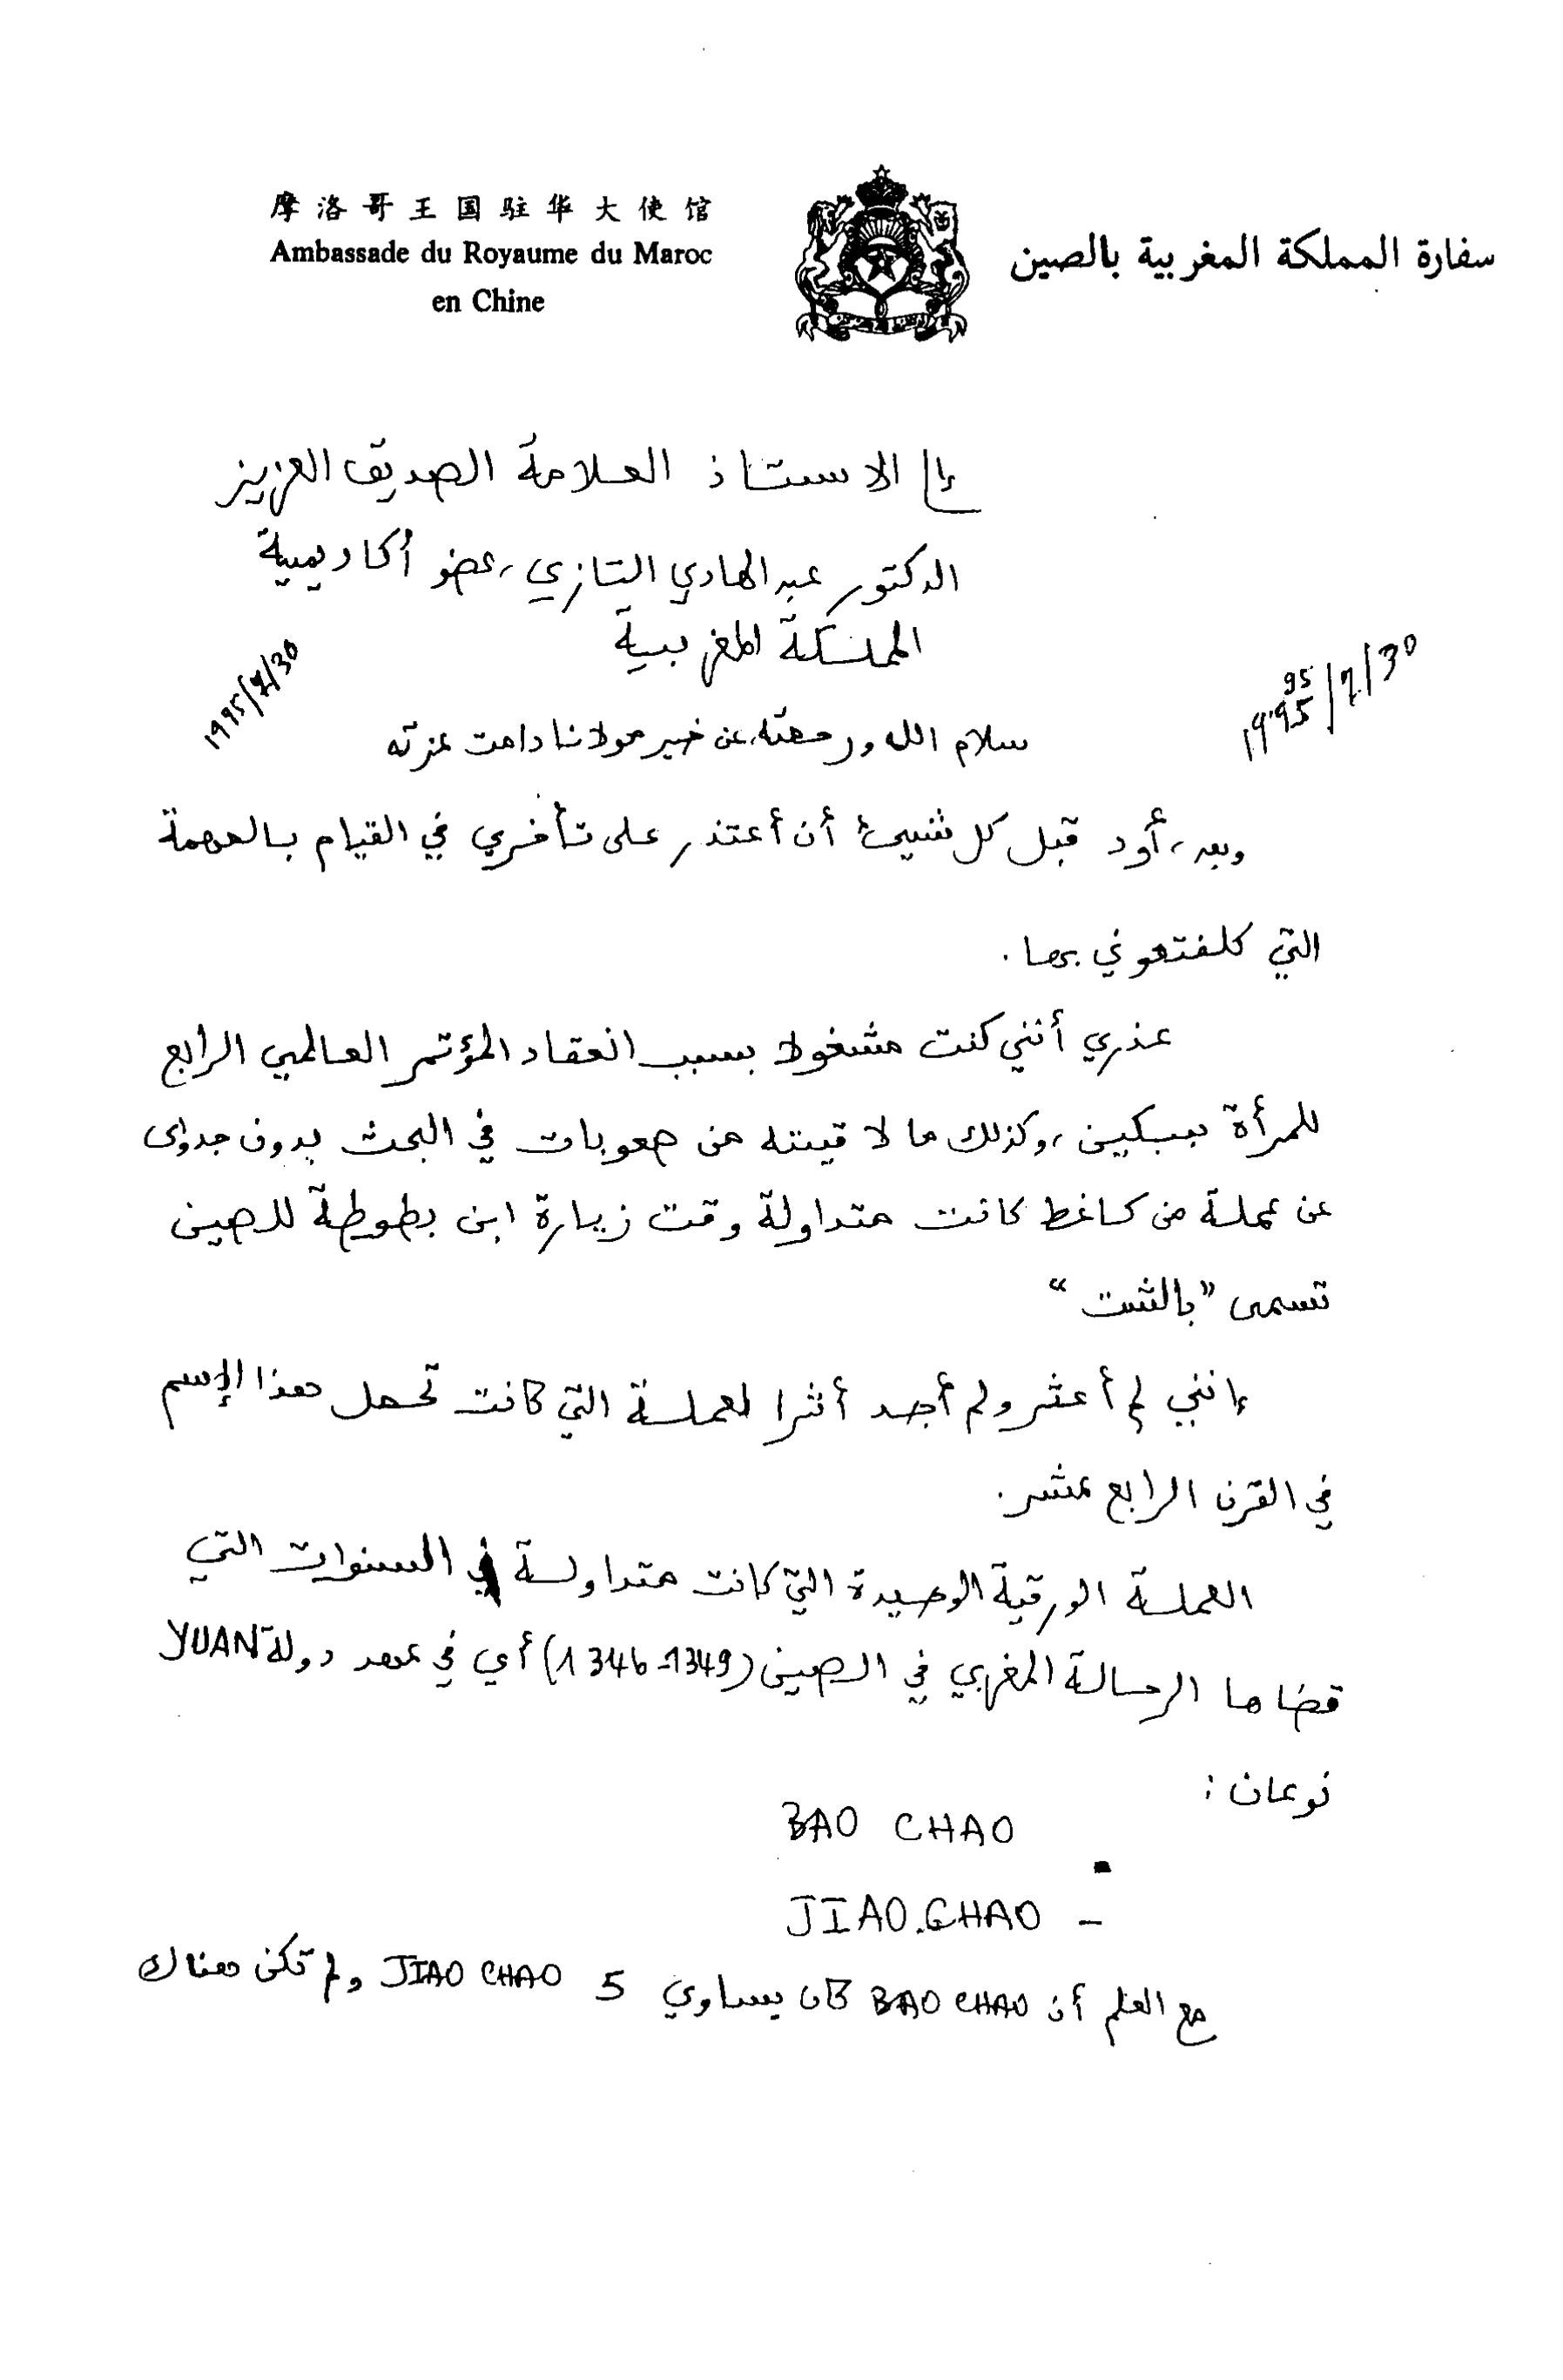 摩洛哥王国驻华大使馆
Ambassade du Royaume du Maroc
en Chine
سفارة المملكة المغربية بالصين
إلى الاستاذ العلامة الصديق العزيز
الدكتور عبد الهادي التازي، عضو أكاديمية
المملكة المغربية
1995/7/30
95
1995/7/30
سلام الله ورحمته عن خير مولانا دامت عزته
وبعد، أود قبل كل شيئ أن أعتذر على تأخري في القيام بالمهمة
التي كلفتموني بها.
عذري أنني كنت مشغولا بسبب انعقاد المؤتمر العالمي الرابع
للمرأة ببيكين، وكذلك ما لاقيته من صعوبات في البحث بدون جدوى
عن عملة من كاغط كانت متداولة وقت زيارة ابن بطوطة للصين
تسمى "بالشت"
إنني لم أعثر ولم أجد أثرا لعملة التي كانت تحمل هذا الإسم
في القرن الرابع عشر.
العملة الورقية الوحيدة التي كانت متداولة في السنوات التي
قضاها الرحالة المغربي في الصين (1349-1346) أي في عهد دولة YUAN
نوعان :
- BAO CHAO
- JIAO.CHAO
مع العلم أن BAO CHAO كان يساوي 5 JIAO CHAO ولم تكن هناك